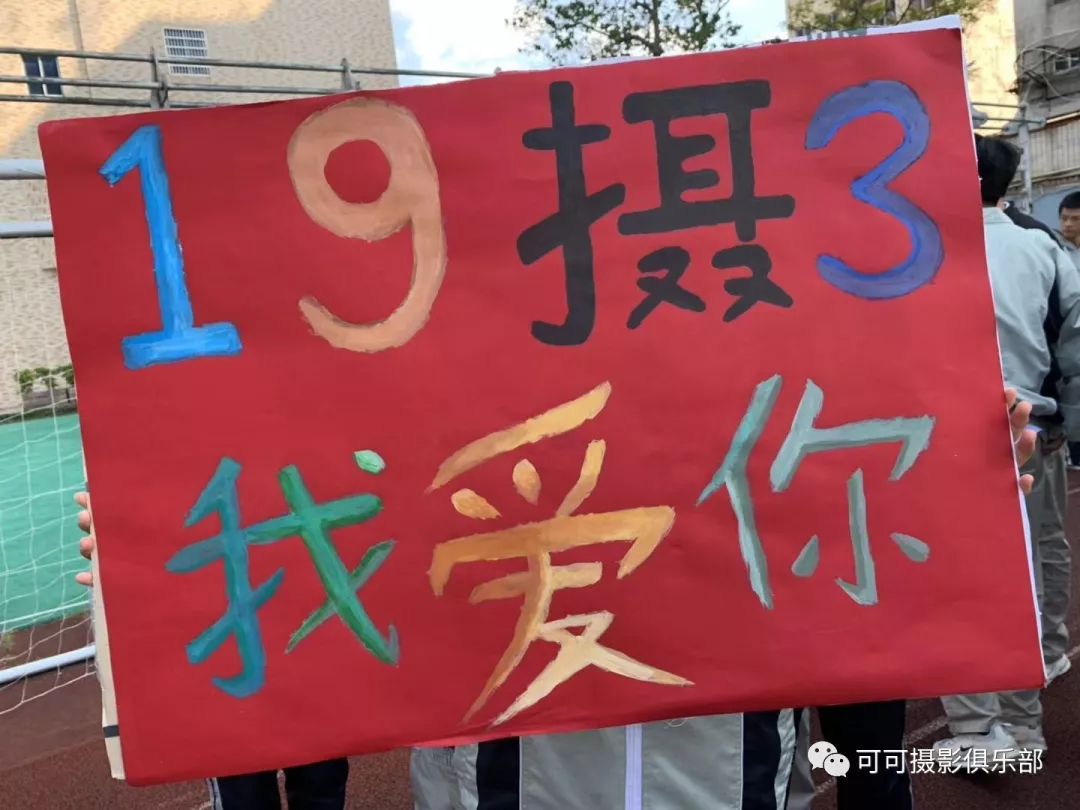 19摄3
我爱你
可可摄影俱乐部